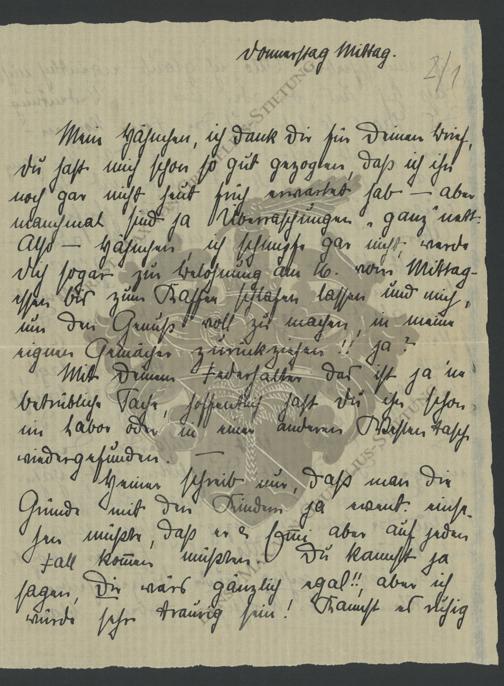 Donnerstag Mittag.
2/1
Mein Hähnchen, ich dank Dir für Deinen Brief,
Du hast mich schon so gut gezogen, daß ich ihn
noch gar nicht heut früh erwartet hab — aber
manchmal sind ja Überraschungen "ganz" nett.
Also — Hähnchen ich schimpfe gar nicht, werde
Dich sogar zur Belohnung am 6. vom Mittag-
essen bis zum Kaffee schlafen lassen und mich,
um den Genuß voll zu machen, in meine
eignen Gemächer zurückziehen!! ja?
Mit Deinem Federhalter das ist ja 'ne
betrübliche Sache, hoffentlich hast Du ihn schon
im Labor oder in einer anderen Westentasche
wiedergefunden. —
Heiner schreib nur, daß man die
Gründe mit den Kindern ja event. einse-
hen müßte, daß er &  aber auf jeden
Fall kommen müßten. Du kannst ja
sagen, Dir wärs gänzlich egal!!, aber ich
würde sehr traurig sein! Kannst es ruhig